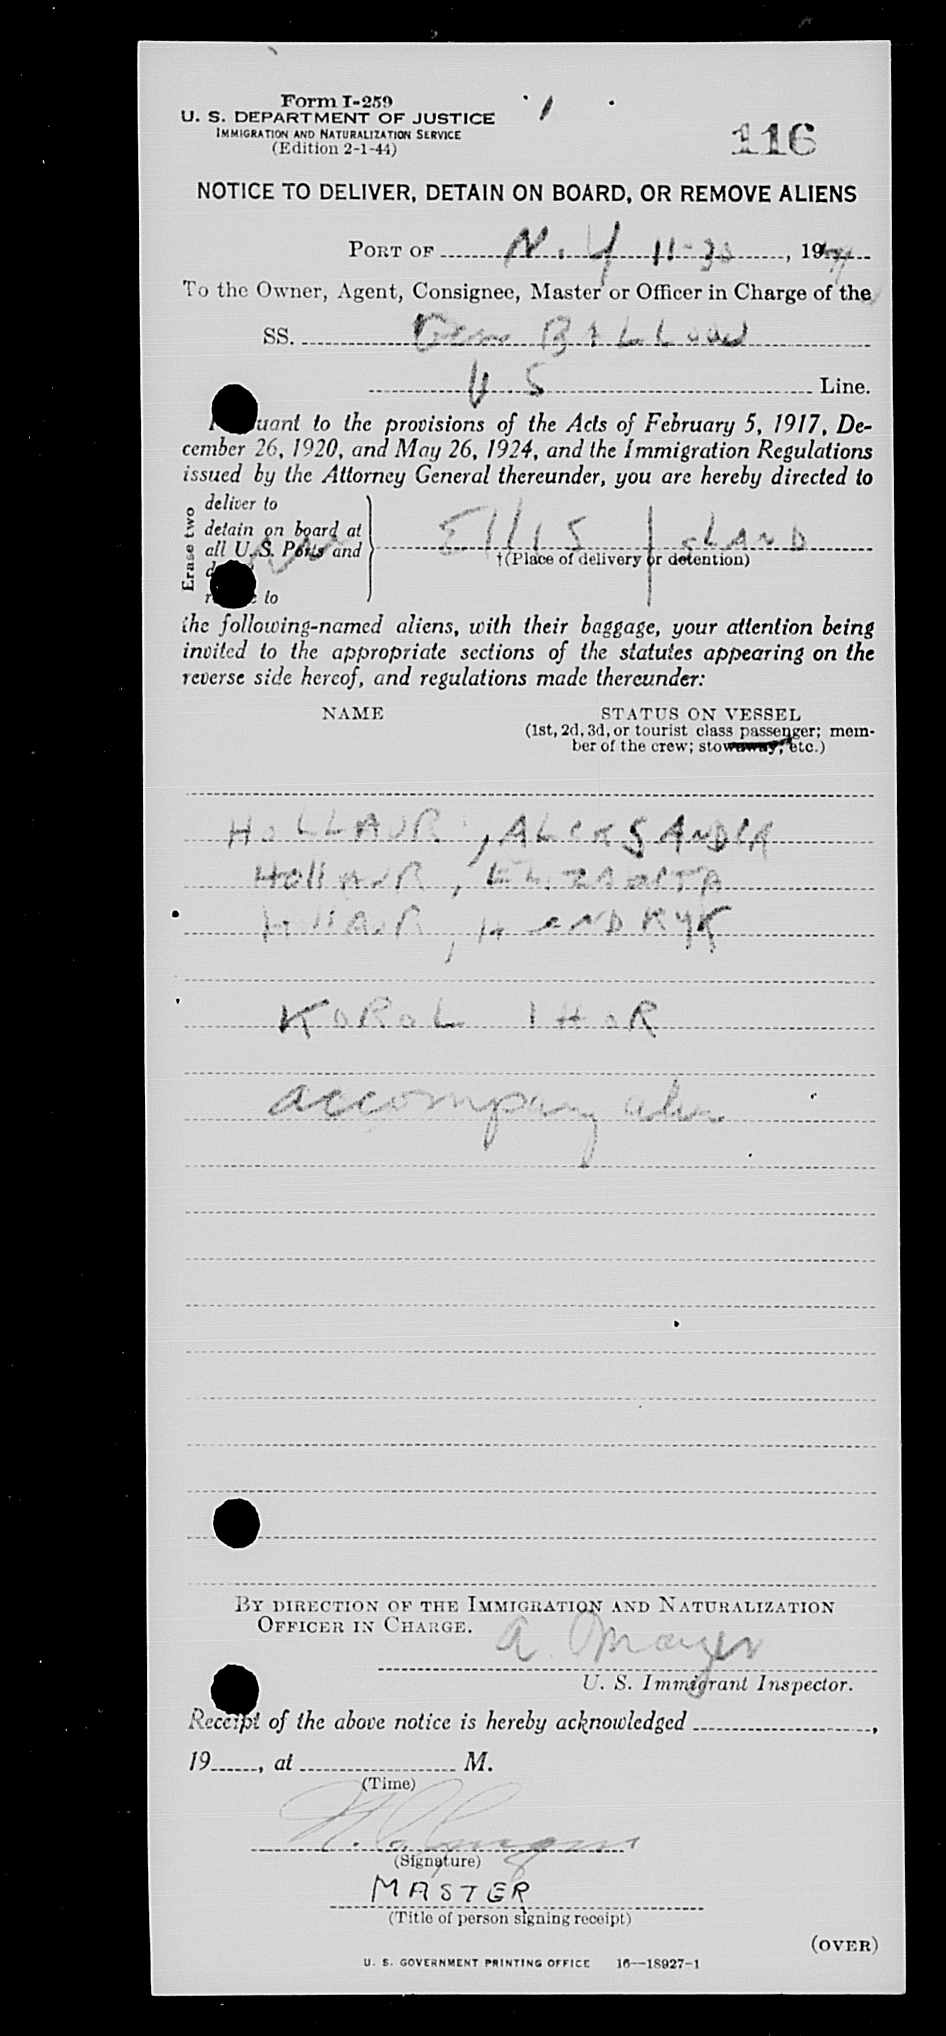 Form I-259
U. S. DEPARTMENT OF JUSTICE
IMMIGRATION AND NATURALIZATION SERVICE
(Edition 2-1-44)
116
NOTICE TO DELIVER, DETAIN ON BOARD, OR REMOVE ALIENS
PORT OF N. Y 11-30, 19
To the Owner, Agent, Consignee, Master or Officer in Charge of the
SS. Gen BALLOU
U S Line.
Pursuant to the provisions of the Acts of February 5, 1917, De-
cember 26, 1920, and May 26, 1924, and the Immigration Regulations
issued by the Attorney General thereunder, you are hereby directed to
Erase two
deliver to
detain on board at
all U. S. Ports and
to
ELLIS ISLAND
†(Place of delivery or detention)
the following-named aliens, with their baggage, your attention being
invited to the appropriate sections of the statutes appearing on the
reverse side hereof, and regulations made thereunder:
NAME STATUS ON VESSEL
(1st, 2d, 3d, or tourist class passenger; mem-
ber of the crew; stowaway, etc.)
HOLLAUR, ALEKSANDRA
HOllAUR, ELIZABETA
HOllAUR, HENDRYK
KOROL IHOR
accompany alien
BY DIRECTION OF THE IMMIGRATION AND NATURALIZATION
OFFICER IN CHARGE.
A. Mayer
U. S. Immigrant Inspector.
Receipt of the above notice is hereby acknowledged ,
19 , at M.
(Time)
(Signature)
MASTER
(Title of person signing receipt)
(OVER)
U. S. GOVERNMENT PRINTING OFFICE 16—18927-1